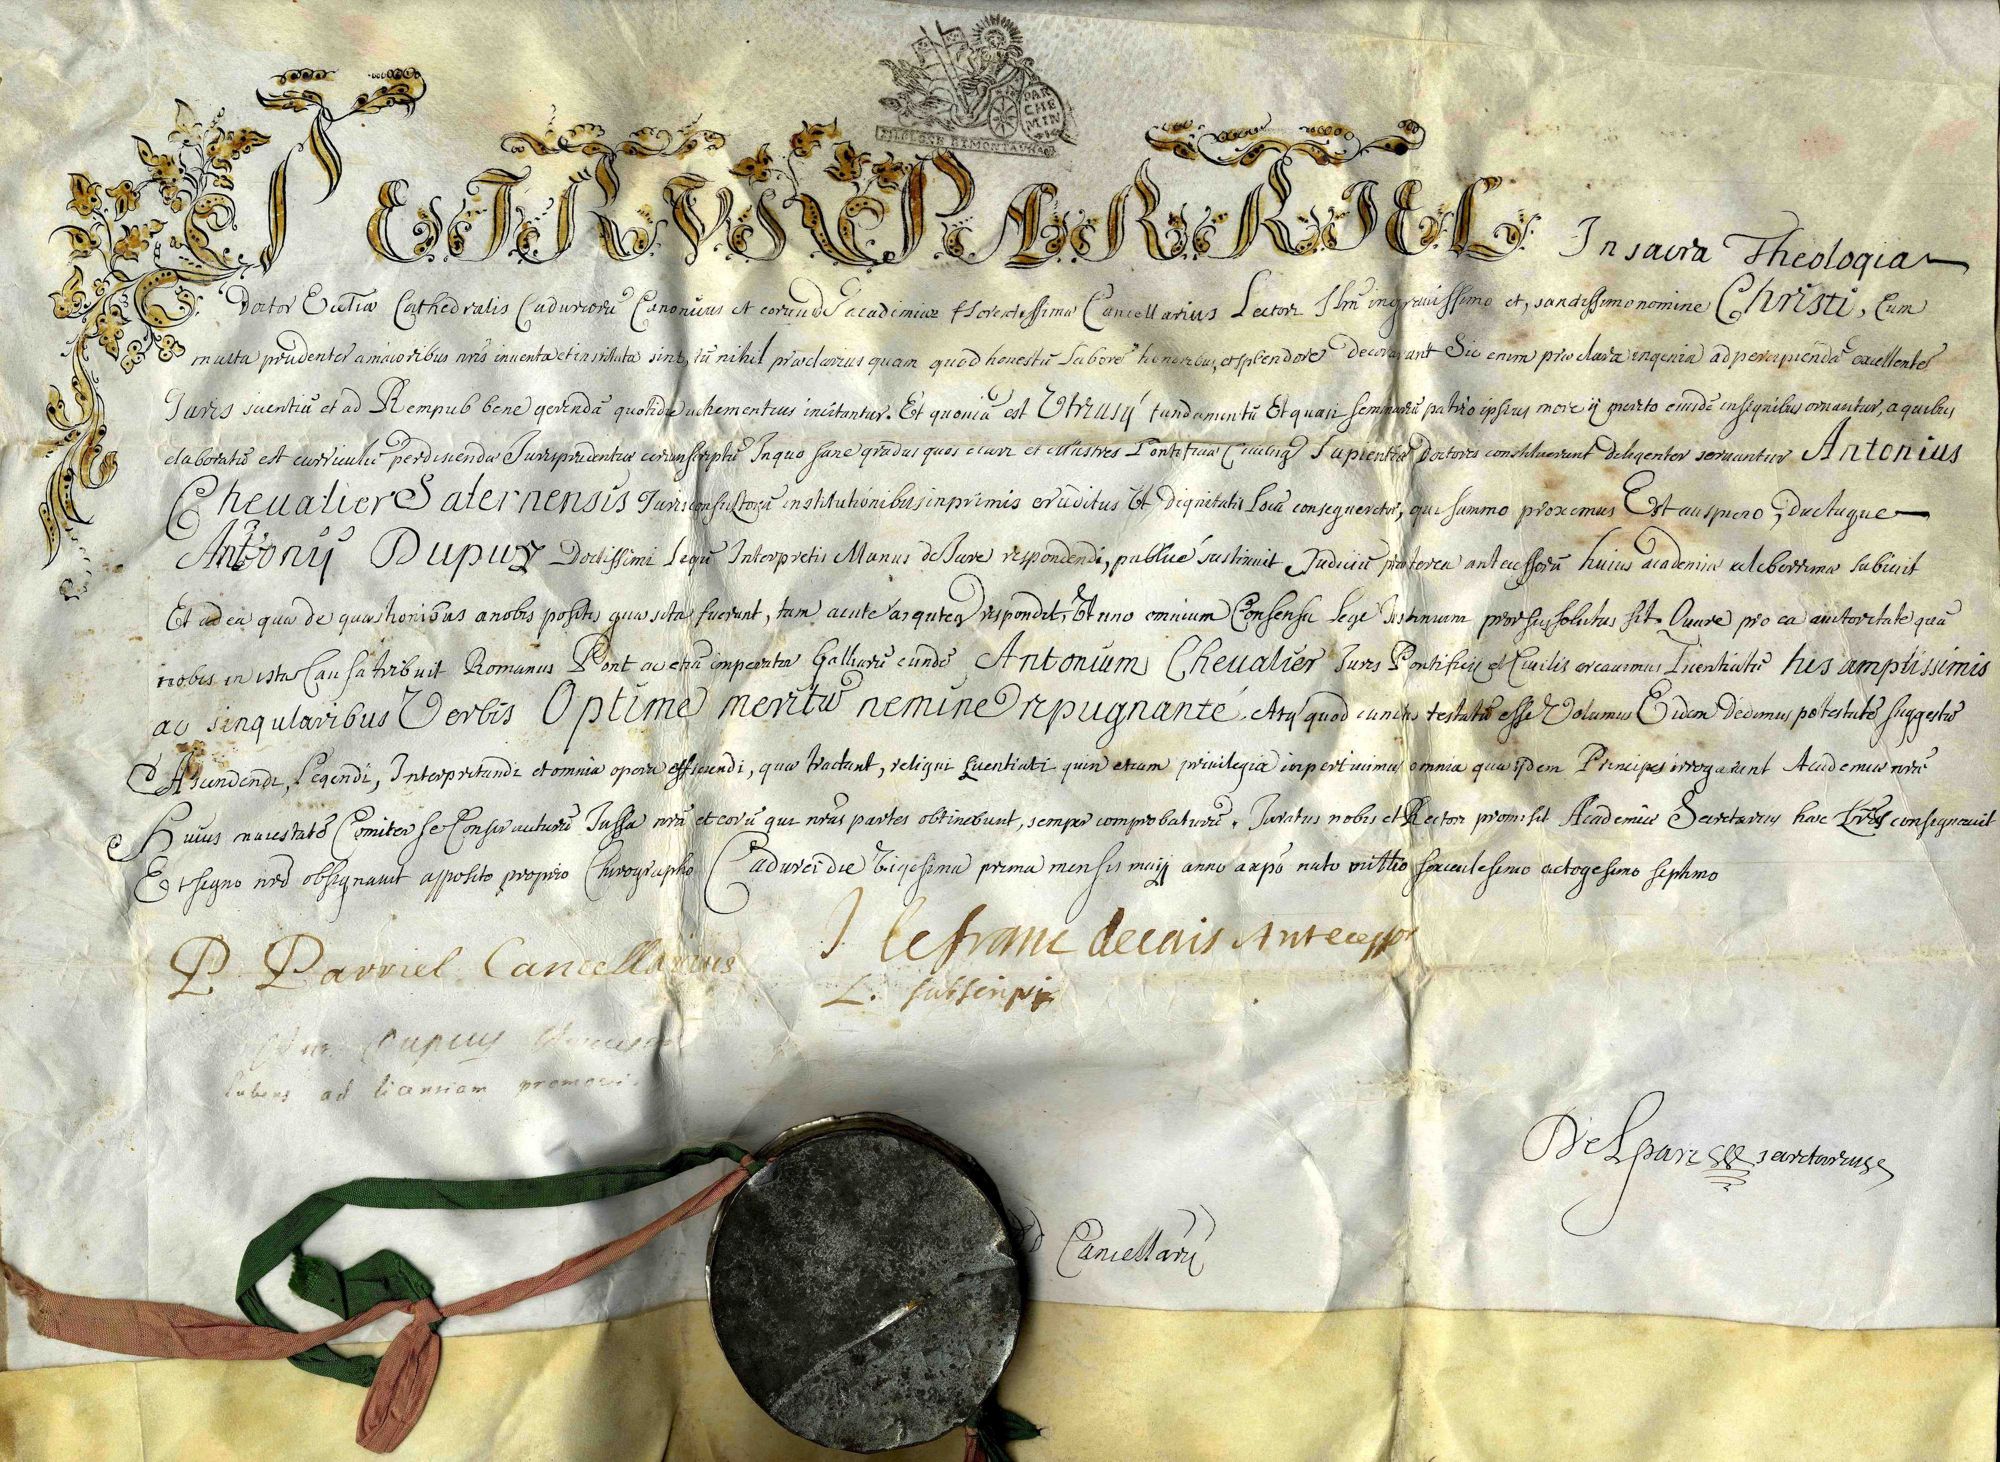 PAR CHE MIN
PETRVS PARRIEL In sacra Theologia
Doctor Cathedralis Canonicus et Academiæ florentissimæ Cancellarius Lectori in gravissimo et, sanctissimo nomine Christi, Cum
multa prudenter a maioribus nr̃is inventa et instituta sint, tũ nihil præclarius quam quod honestũ laborẽ honoribus, et splendore decorarunt Sic enim præclara ingenia ad percipiendã excellentẽ
Juris scientiã et ad Rempub bene gerendã quotidie vehementius incitantur. Et quoniã est Utriusq́ fundamentũ Et quasi seminariũ patrio ipsius more ij merito eiusdẽ insignibus ornantur, a quibus
elaboratũ est curriculũ perdiscendæ Jurisprudentiæ circunscriptũ In quo sane gradus quos clari et illustres Pontificiæ Civilisq Sapientiæ doctores constituerunt diligenter servantur Antonius
Chevalier Salernensis Jurisconsultorũ institutionibus inprimis eruditus Ut dignitatis Locũ consequeretur, qui summo proximus Est auspicio, ductuque
Antonij Dupuy Doctissimi Legũ Interpretis Manus de Jure respondendi, publicè sustinuit Judiciũ præterea antecessorũ huius academiæ celeberrimæ subivit
Et ad ea quæ de quæstionibus a nobis positis quæsita fuerunt, tam acutè argutèq respondit, Ut uno omnium Consensu Lege prorsus solutus sit. Quare pro ea auctoritate quã
nobis in ista Causa tribuit Romanus Pont ac etiã imperator Galliarũ eundẽ Antonium Chevalier Juris Pontificij et Civilis creavimus Licentiatũ his amplissimis
ac singularibus Verbis Optime meritũ nemine repugnante. Atq quod cunctis testatũ esse Volumus Eidem dedimus potestatẽ suggestũ
Ascendendi, Legendi, Interpretandi et omnia opera efficiendi, quæ tractant, reliqui Licentiati quin etiam privilegia inpertivimus omnia quæ ijdem Principes irrogarunt Academiæ nr̃æ
Huius maiestatẽ Comiter se Conservaturũ Jussa nr̃a et eorũ qui nr̃as partes obtinebunt, semper comprobaturũ. Juratus nobis et Rectori promisit Academiæ Secretarius has Lr̃as consignavit
Et signo nr̃o obsignavit apposito proprio Chirographo Cadurci die vigesima prima mensis maij anno a xp̃o nato millio sexcentesimo octogesimo septimo
P. Parriel Cancellarius
J. lefranc decais Antecessor
L. subscripsi
Dupuy
lubens ad licentiam promovi.
Delpart secretarius
Cancellarij